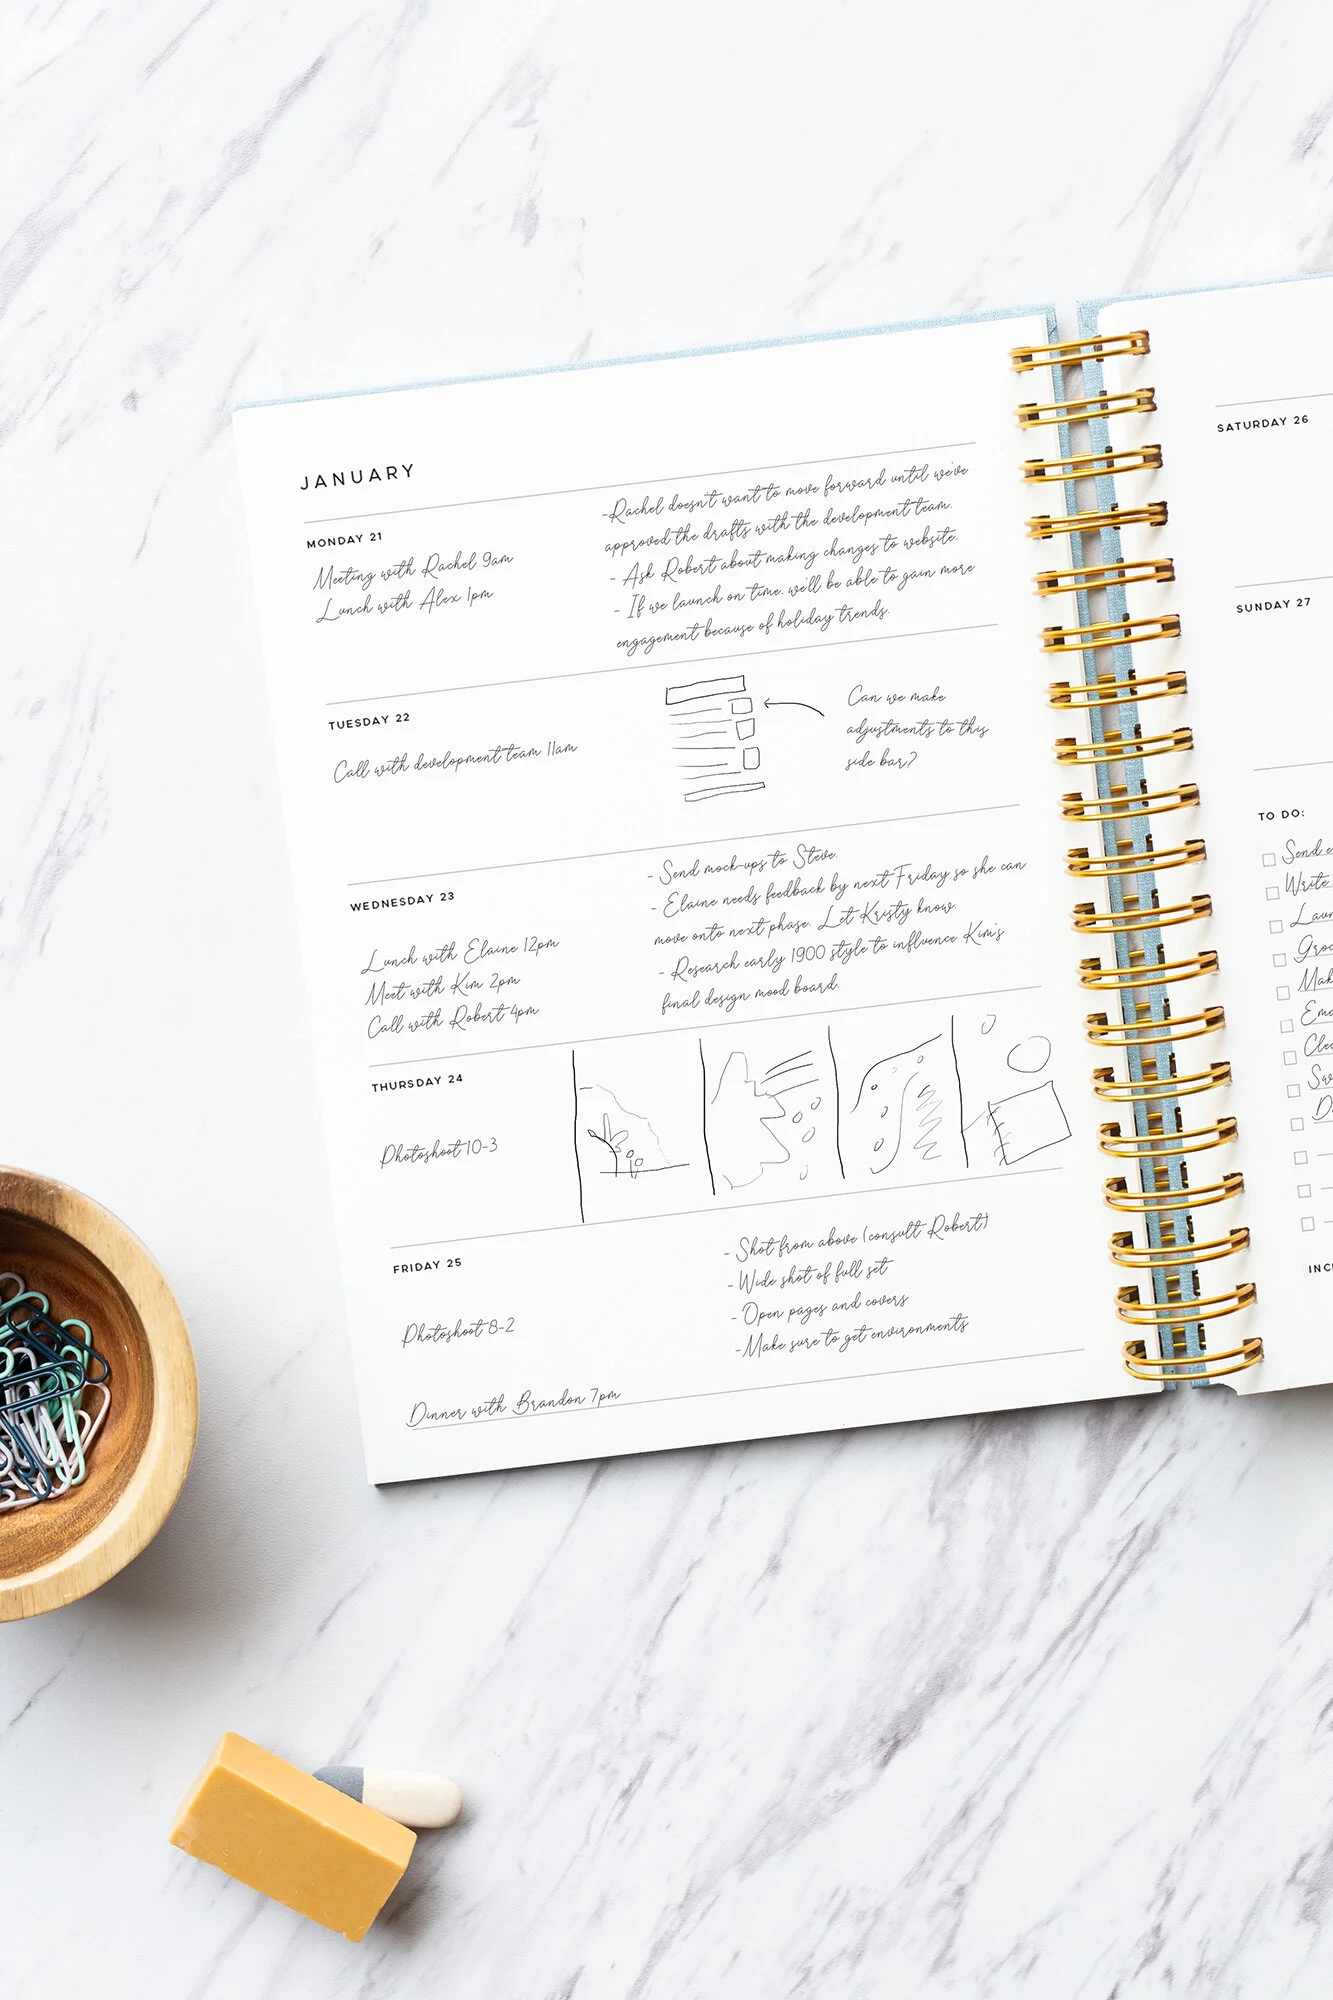 JANUARY
MONDAY 21
Meeting with Rachel 9am
Lunch with Alex 1pm
-Rachel doesn't want to move forward until we've
approved the drafts with the development team.
- Ask Robert about making changes to website.
- If we launch on time, we'll be able to gain more
engagement because of holiday trends.
TUESDAY 22
Call with development team 11am
Can we make
adjustments to this
side bar?
WEDNESDAY 23
Lunch with Elaine 12pm
Meet with Kim 2pm
Call with Robert 4pm
- Send mock-ups to Steve.
- Elaine needs feedback by next Friday so she can
move onto next phase. Let Kristy know.
- Research early 1900 style to influence Kim's
final design mood board.
THURSDAY 24
Photoshoot 10-3
FRIDAY 25
Photoshoot 8-2
Dinner with Brandon 7pm
- Shot from above (consult Robert)
- Wide shot of full set
- Open pages and covers
- Make sure to get environments
SATURDAY 26
SUNDAY 27
TO DO:
Send
Write